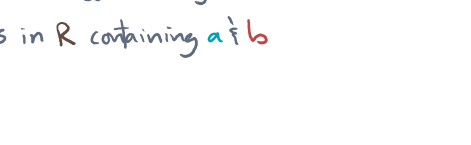 s in R containing a & b